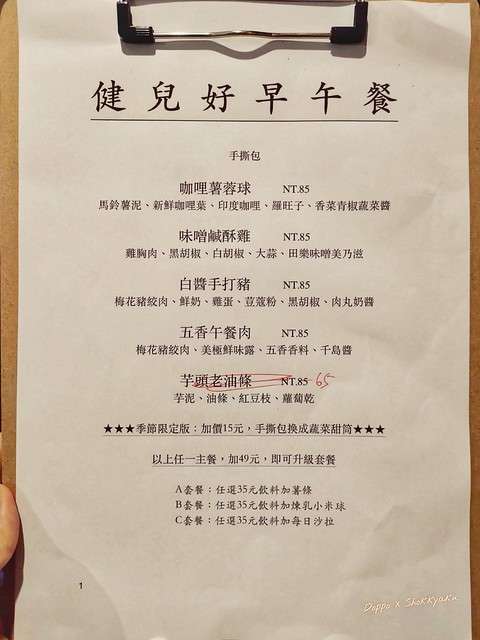 健兒好早午餐
手撕包
咖哩薯蓉球 NT.85
馬鈴薯泥、新鮮咖哩葉、印度咖哩、羅旺子、香菜青椒蔬菜醬
味噌鹹酥雞 NT.85
雞胸肉、黑胡椒、白胡椒、大蒜、田樂味噌美乃滋
白醬手打豬 NT.85
梅花豬絞肉、鮮奶、雞蛋、荳蔻粉、黑胡椒、肉丸奶醬
五香午餐肉 NT.85
梅花豬絞肉、美極鮮味露、五香香料、千島醬
芋頭老油條 NT.85 65
芋泥、油條、紅豆枝、蘿蔔乾
★★★季節限定版：加價15元，手撕包換成蔬菜甜筒★★★
以上任一主餐，加49元，即可升級套餐
A套餐：任選35元飲料加薯條
B套餐：任選35元飲料加煉乳小米球
C套餐：任選35元飲料加每日沙拉
1
Doppo x Shokkyaku